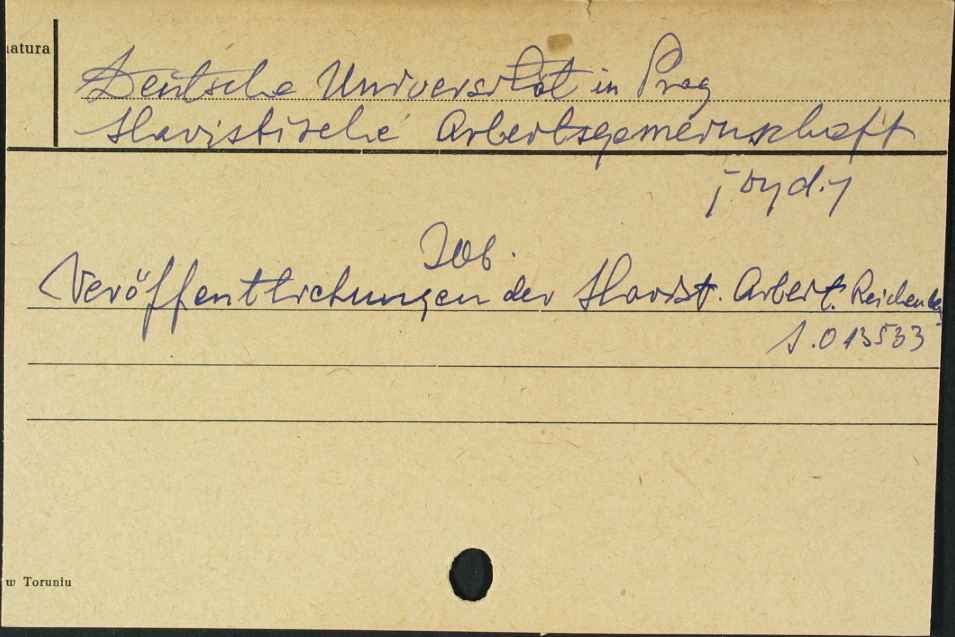 natura
Deutsche Universität in Prag
Slavistische Arbeitsgemeinschaft
[wyd.]
Zob.
Veröffentlichungen der Slavist. Arbeit. Reichenberg
S.013533
w Toruniu